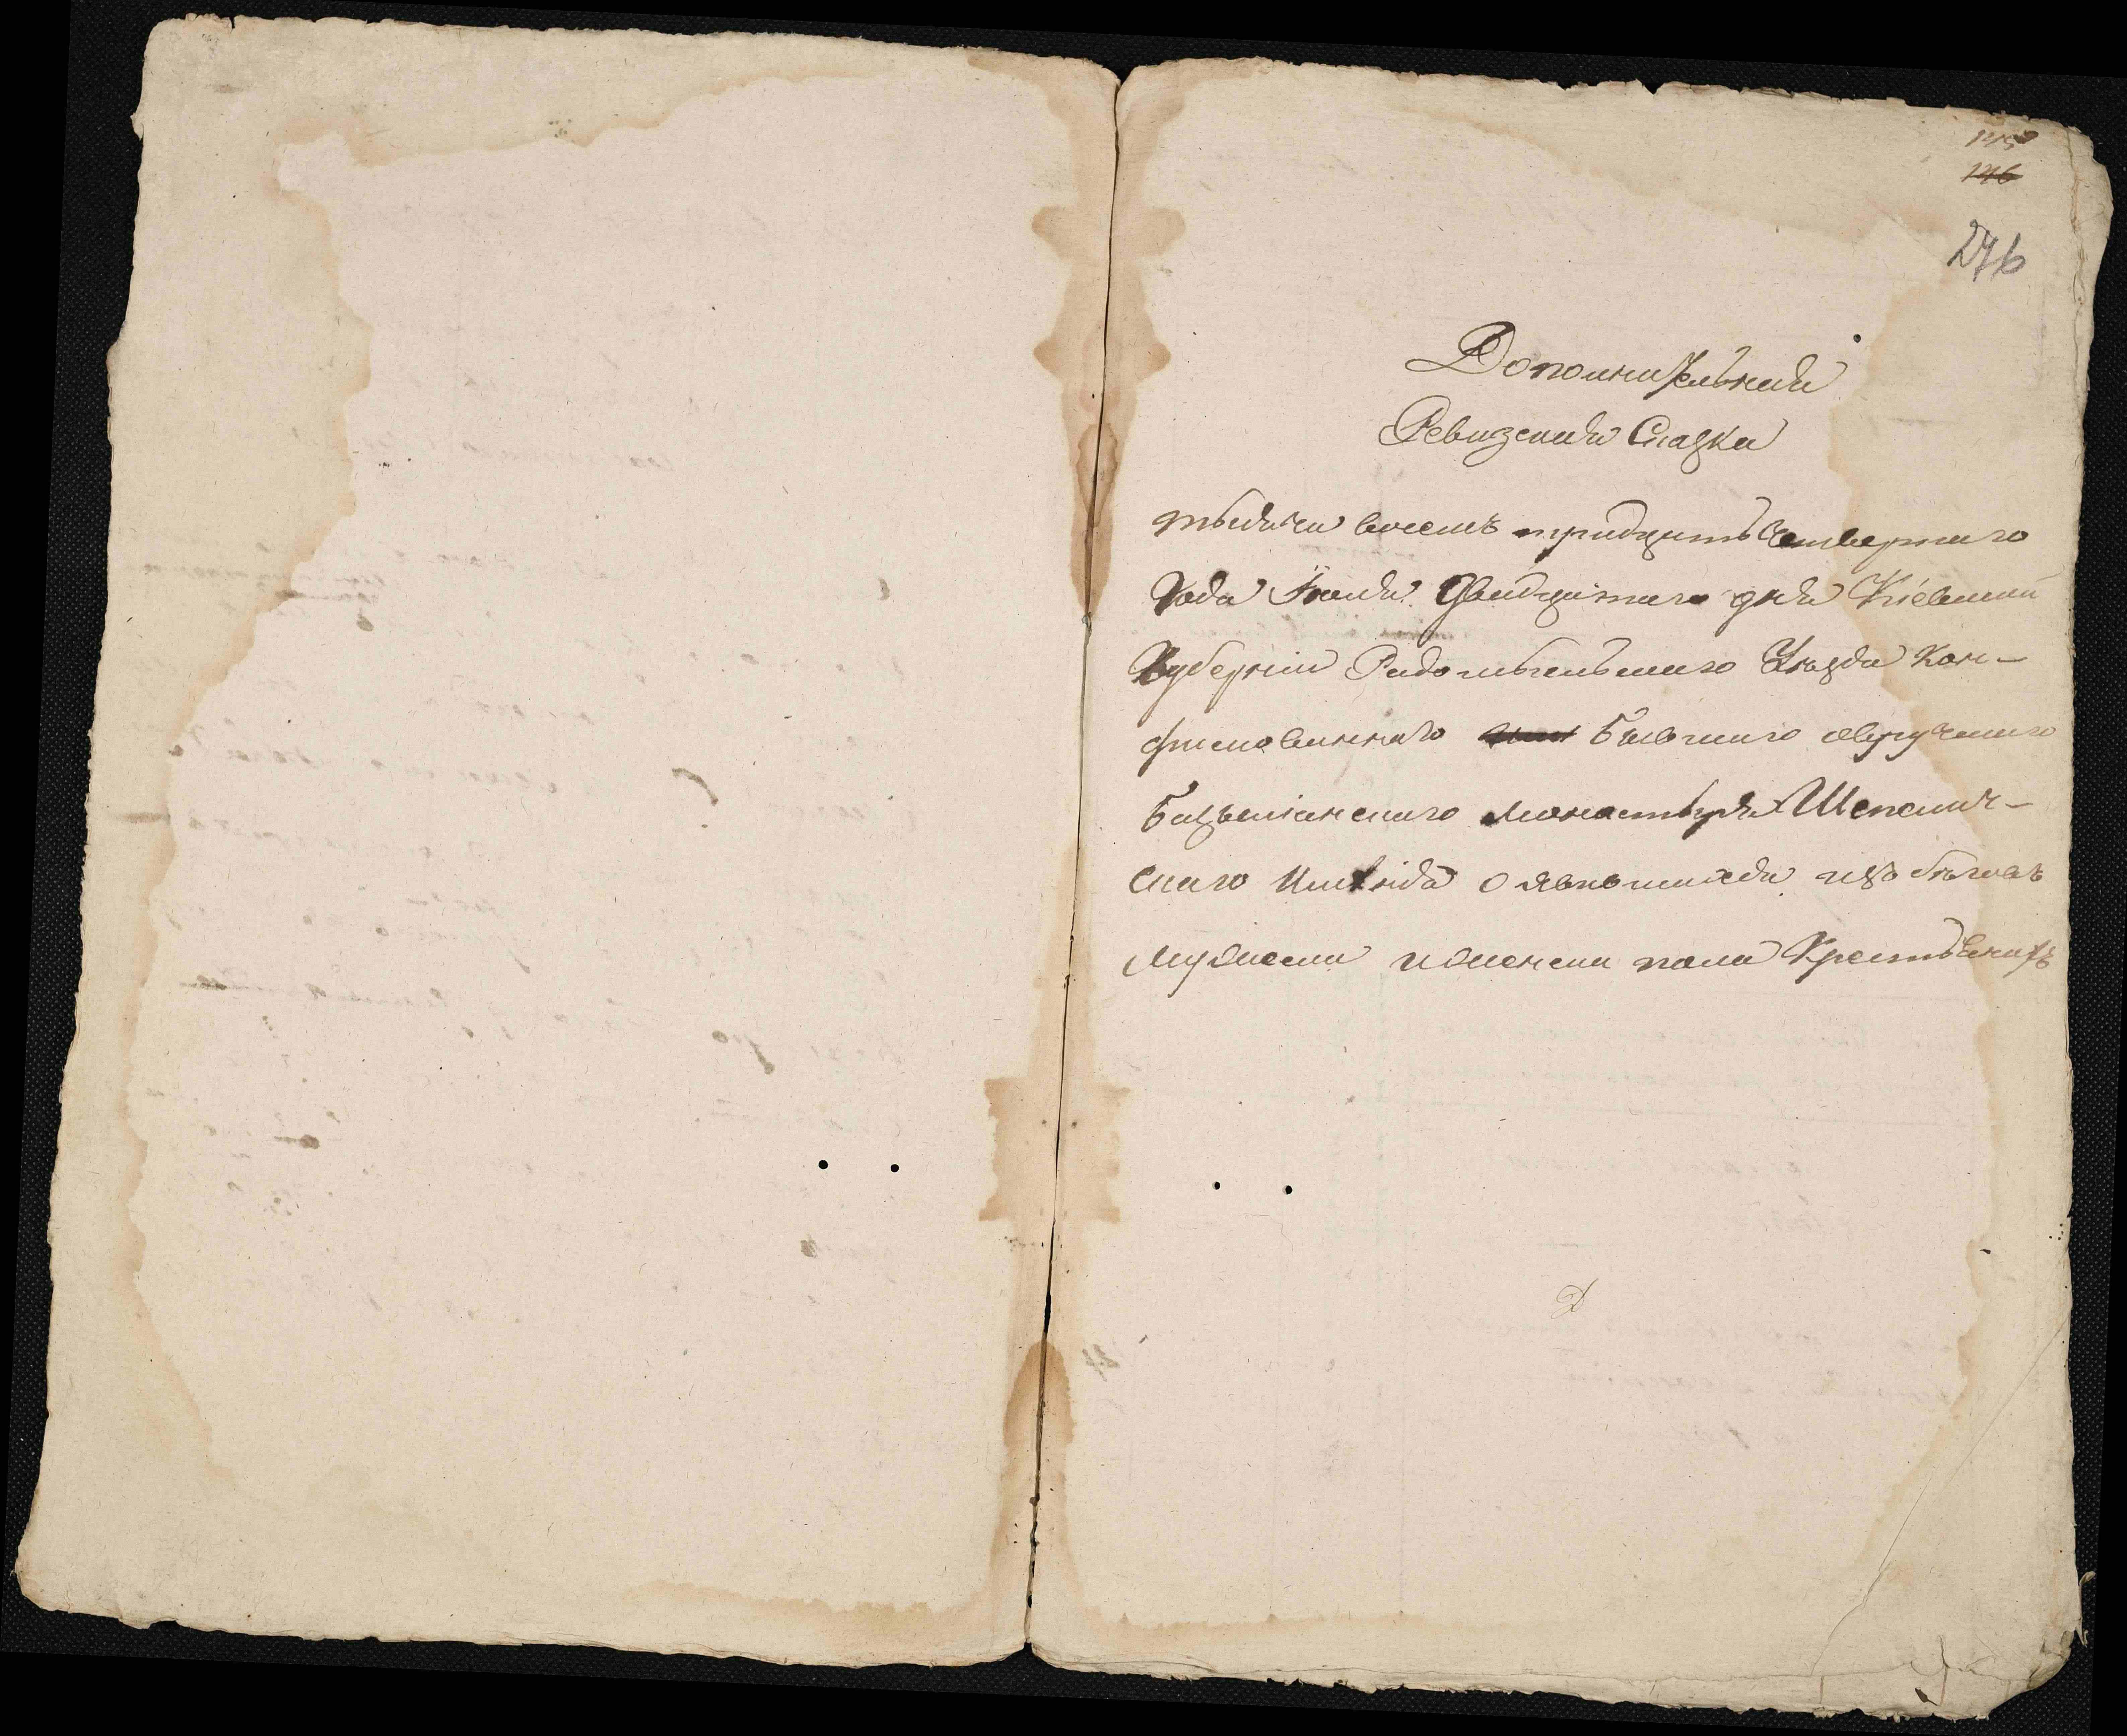 145
146
276
Дополнительная
Ревизская Сказка
тысяча восемъ тридцать Четвертаго
Года Іюля Двадцатаго дня Кіевской
Губерніи Радомысльскаго Уѣзда Кон-
фискованнаго Бывшаго овручскаго
Базыліанскаго Монастыря Шепелич-
скаго Имѣнія о явившихся изъ бѣговъ
мужеска и женска пола Крестьянахъ